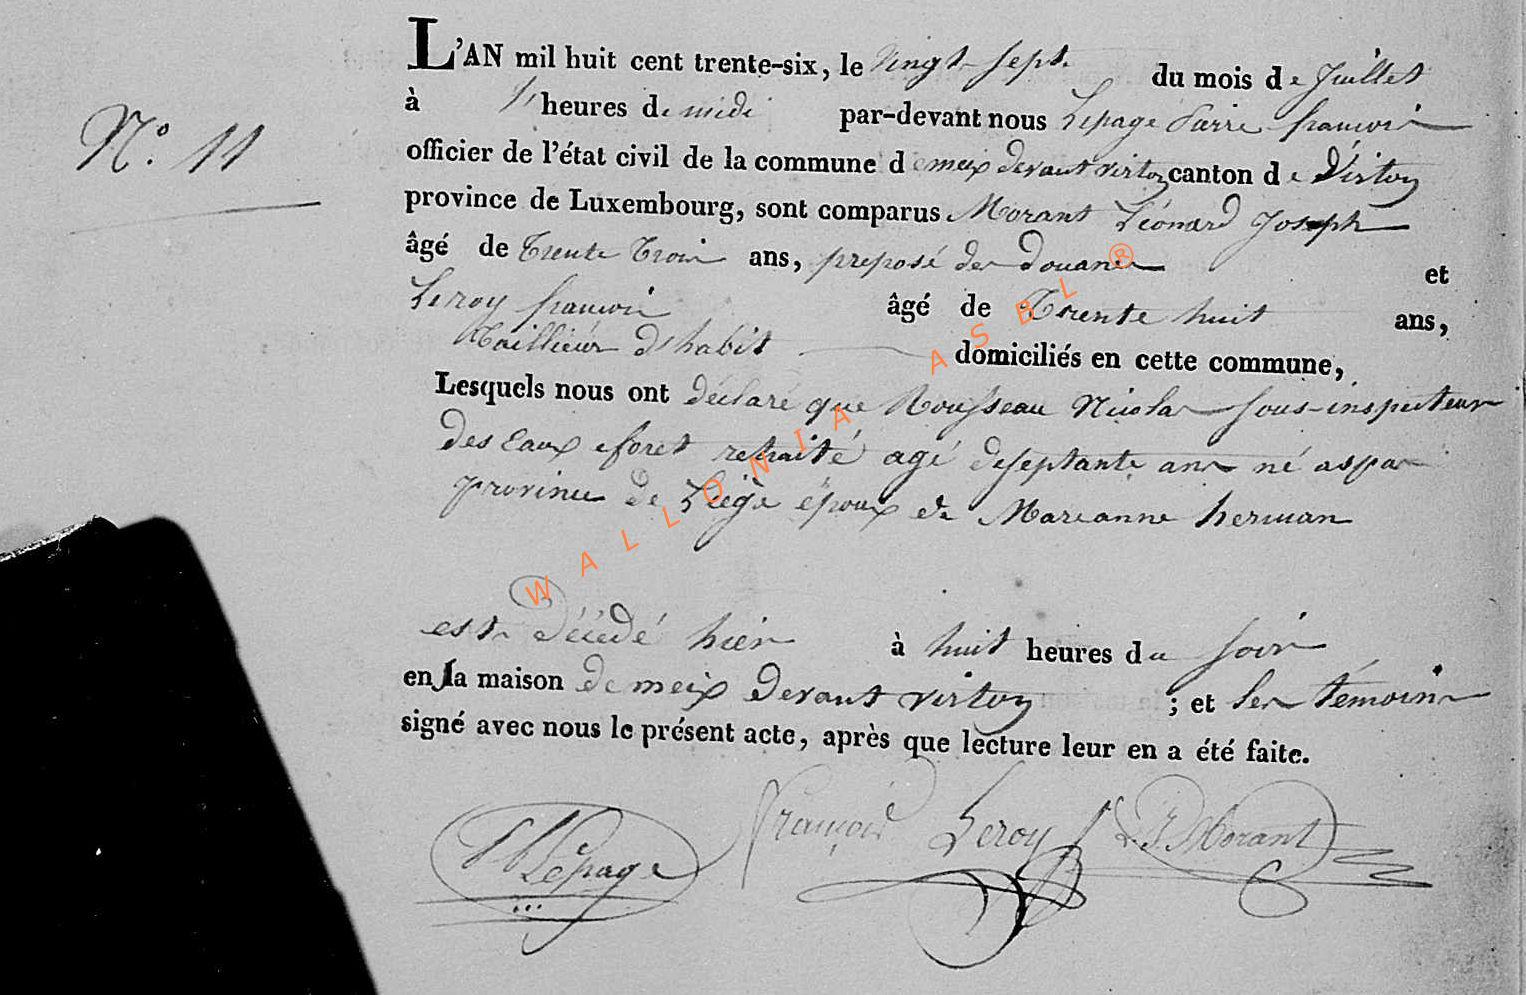 L'AN mil huit cent trente-six, le vingt sept du mois de Juillet
à heures de midi par-devant nous Lepage Pierre françois
N.° 11
officier de l'état civil de la commune de meix devant virton canton de Virton
province de Luxembourg, sont comparus Morant Léonard Joseph
âgé de Trente Trois ans, preposé des douanes et
Leroy françois âgé de Trente huit ans,
Taillieur d'habit domiciliés en cette commune,
Lesquels nous ont déclaré que Rousseau Nicolas sous-inspecteur
des Eaux eforet retraité agé deseptante ans né aspa
province de Liége époux de Marianne herman
est décédé hier à huit heures du soir
en la maison de meix devant virton ; et les témoins
signé avec nous le présent acte, après que lecture leur en a été faite.
Lepage François Leroy L. J. Morant
WALLONIA ASBL ®